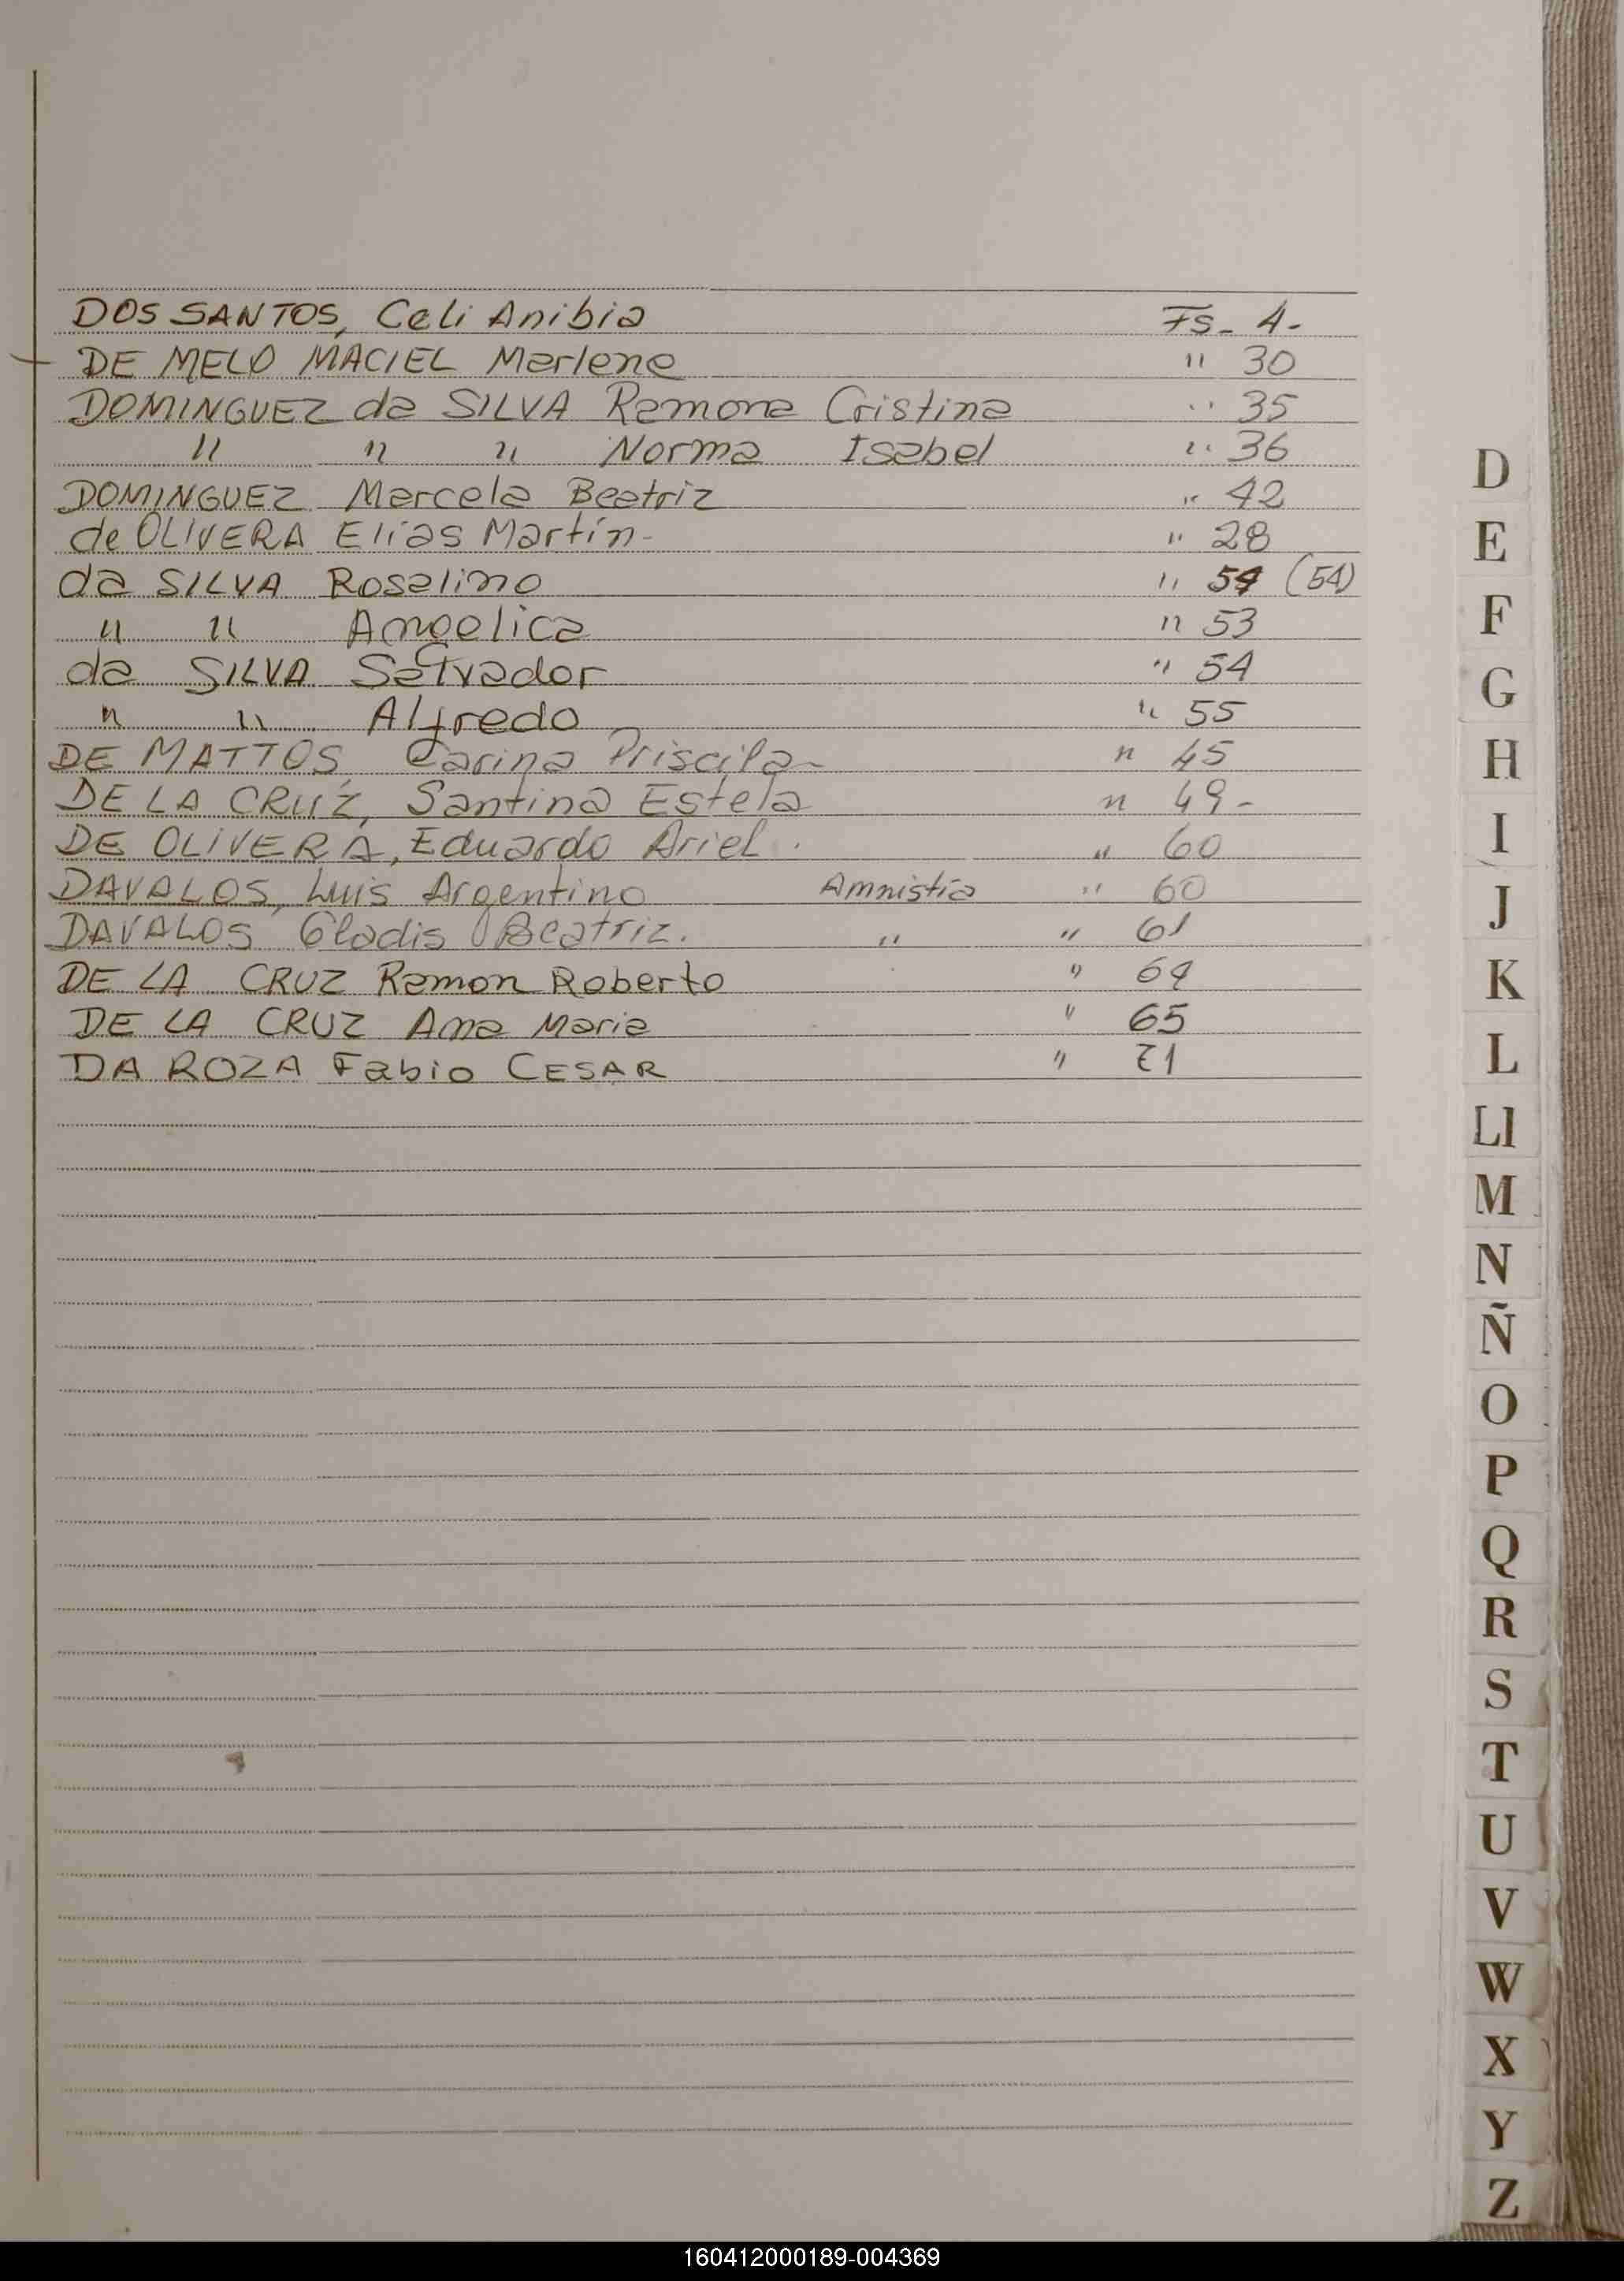 DOS SANTOS, Celi Anibia Fs- 4-
DE MELO MACIEL Marlene " 30
DOMINGUEZ da SILVA Ramona Cristina " 35
" " " Norma Isabel " 36
DOMINGUEZ Marcela Beatriz " 42
de OLIVERA Elías Martín- " 28
da SILVA Roselino " 54 (54)
" " Angelica " 53
da SILVA Salvador " 54
" " Alfredo " 55
DE MATTOS, Carina Priscila- " 45
DE LA CRUZ, Santina Estela " 49-
DE OLIVERA, Eduardo Ariel. " 60
DAVALOS, Luis Argentino Amnistía " 60
DAVALOS Gladis Beatriz. " " 61
DE LA CRUZ Ramon Roberto " 64
DE LA CRUZ Ana Maria " 65
DA ROZA Fabio CESAR " 71
D
E
F
G
H
I
J
K
L
Ll
M
N
Ñ
O
P
Q
R
S
T
U
V
W
X
Y
Z
160412000189-004369